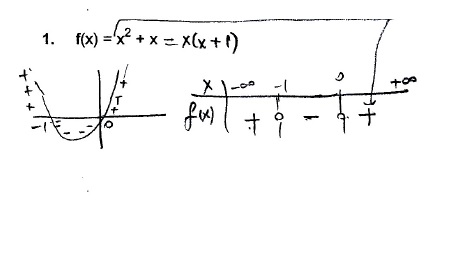 1. f(x) = x² + x = x(x + 1)
+ + + -1 - - - - - 0 + + +
x | -∞ -1 0 +∞
f(x) | + 0 - 0 +